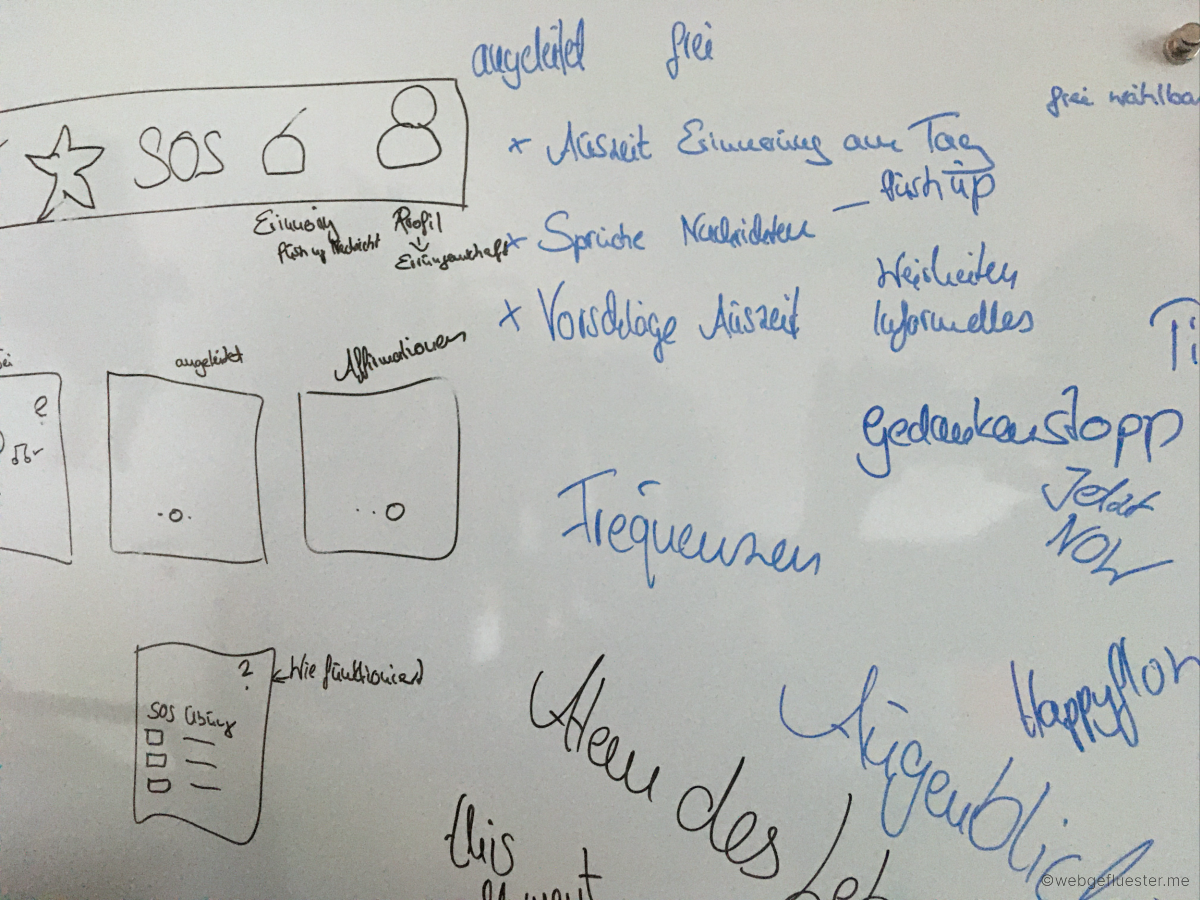 angeleitet frei
frei wählba
SOS
* Auszeit Erinnerung am Tag
Push up
Erinnerung
Push up Nachricht
Profil
Errungenschaft
* Sprüche Nachrichten –
Weisheiten
Informelles
* Vorschläge Auszeit
Ti
ei
angeleitet
Affirmationen
?
Gedankenstopp
Jetzt
NOW
Frequenzen
? Wie funktioniert
SOS Übung
Atem des Leb
Augenblick
Happyflow
this
moment
©webgefluester.me